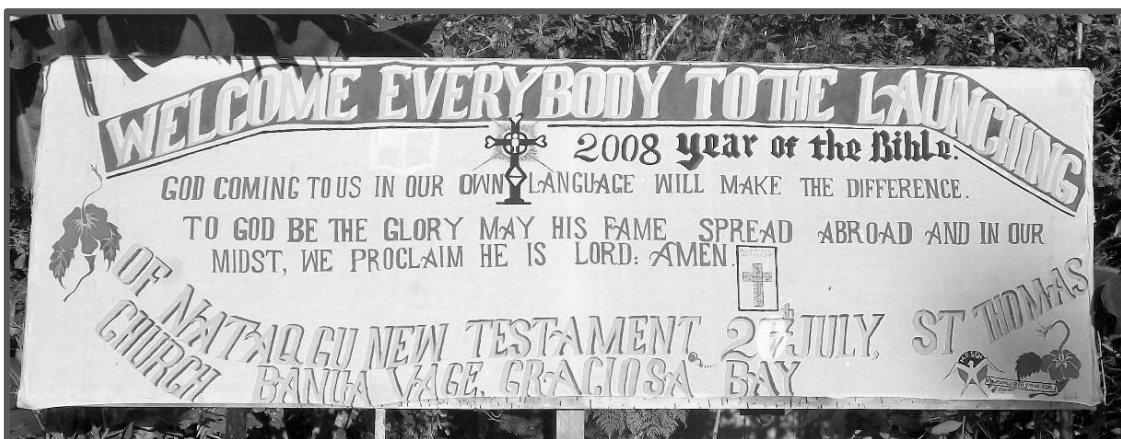 WELCOME EVERYBODY TO THE LAUNCHING
2008 Year of the Bible.
GOD COMING TO US IN OUR OWN LANGUAGE WILL MAKE THE DIFFERENCE.
TO GOD BE THE GLORY MAY HIS FAME SPREAD ABROAD AND IN OUR
MIDST, WE PROCLAIM HE IS LORD: AMEN.
OF NATAQGU NEW TESTAMENT JULY, ST THOMAS
CHURCH BANUA VAGE, GRACIOSA BAY